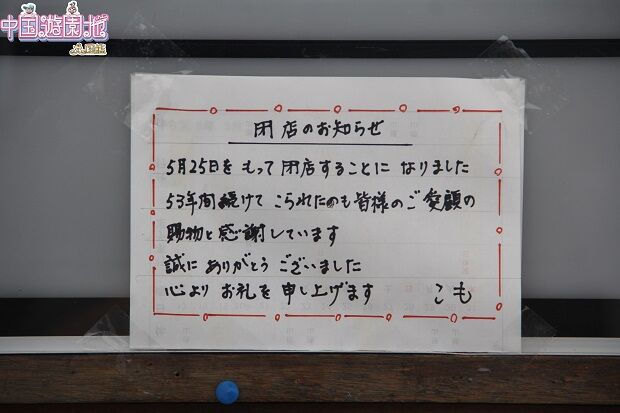 中国遊園地
閉店のお知らせ
5月25日をもって閉店することになりました
53年間続けてこられたのも皆様のご愛顧の
賜物と感謝しています
誠にありがとうございました
心よりお礼を申し上げます こも